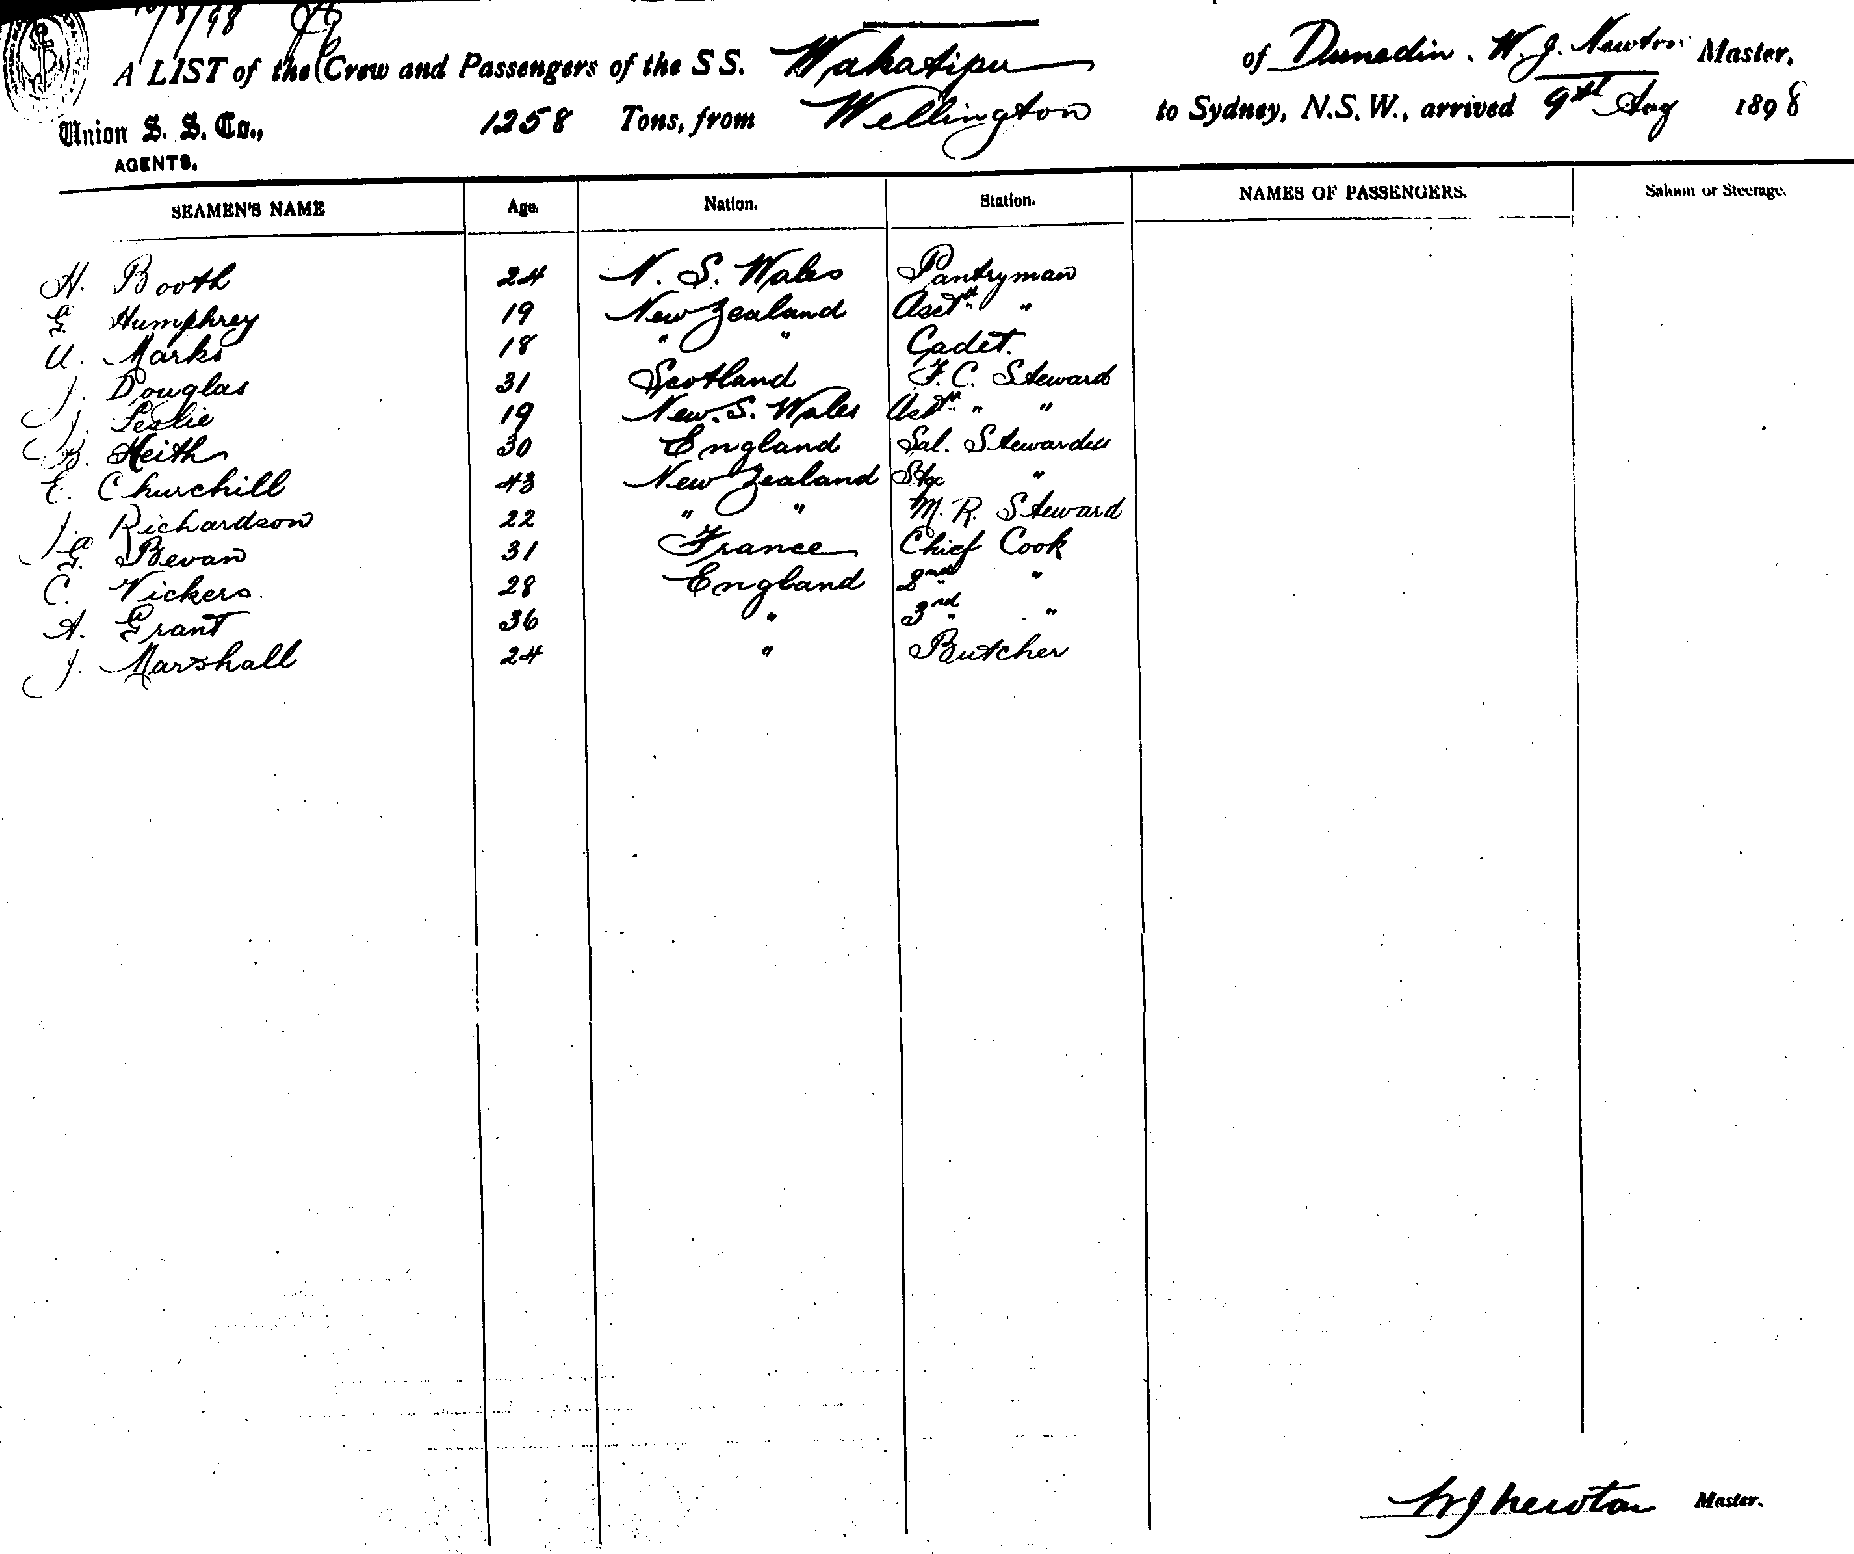 10/8/98
A LIST of the Crew and Passengers of the S S. Wakatipu of Dunedin. W. J. Newton Master,
Union S. S. Co., 1258 Tons, from Wellington to Sydney, N.S.W., arrived 9st Aug 1898
AGENTS.
SEAMEN'S NAME Age. Nation. Station. NAMES OF PASSENGERS. Saloon or Steerage.
H. Booth 24 N. S. Wales Pantryman
G Humphrey 19 New Zealand Asstt "
U. Marks 18 " " Cadet.
J. Douglas 31 Scotland F. C. Steward
J. Leslie 19 New. S. Wales Asstt " "
B. Keith 30 England Sal. Stewardess
E. Churchill 43 New Zealand Stge "
J. Richardson 22 " " M. R. Steward
G. Bevan 31 France Chief Cook
C. Vickers 28 England 2nd "
A. Grant 36 " 3rd " "
J. Marshall 24 " Butcher
W J Newton Master.